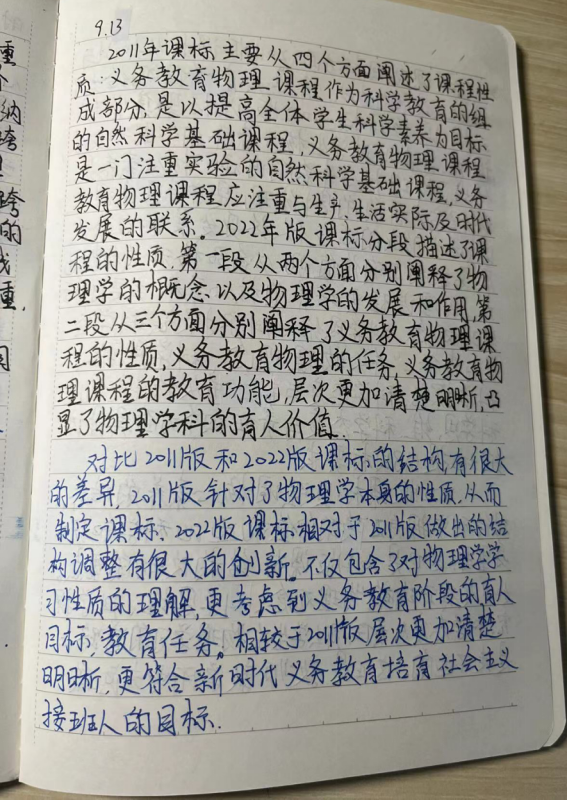 9.13
2011年课标主要从四个方面阐述了课程性
质:义务教育物理课程作为科学教育的组
成部分,是以提高全体学生科学素养为目标
的自然科学基础课程,义务教育物理课程
是一门注重实验的自然科学基础课程,义务
教育物理课程应注重与生产、生活实际及时代
发展的联系。2022年版课标分段描述了课
程的性质,第一段从两个方面分别阐释了物
理学的概念、以及物理学的发展和作用,第
二段从三个方面分别阐释了义务教育物理课
程的性质,义务教育物理的任务,义务教育物
理课程的教育功能,层次更加清楚明晰,凸
显了物理学科的育人价值.
对比2011版和2022版课标的结构,有很大
的差异,2011版针对了物理学本身的性质,从而
制定课标、2022版课标相对于2011版做出的结
构调整有很大的创新。不仅包含了对物理学学
习性质的理解,更考虑到义务教育阶段的育人
目标,教育任务。相较于2011版层次更加清楚
明晰,更符合新时代义务教育培育社会主义
接班人的目标.
纳
跨
的
重,